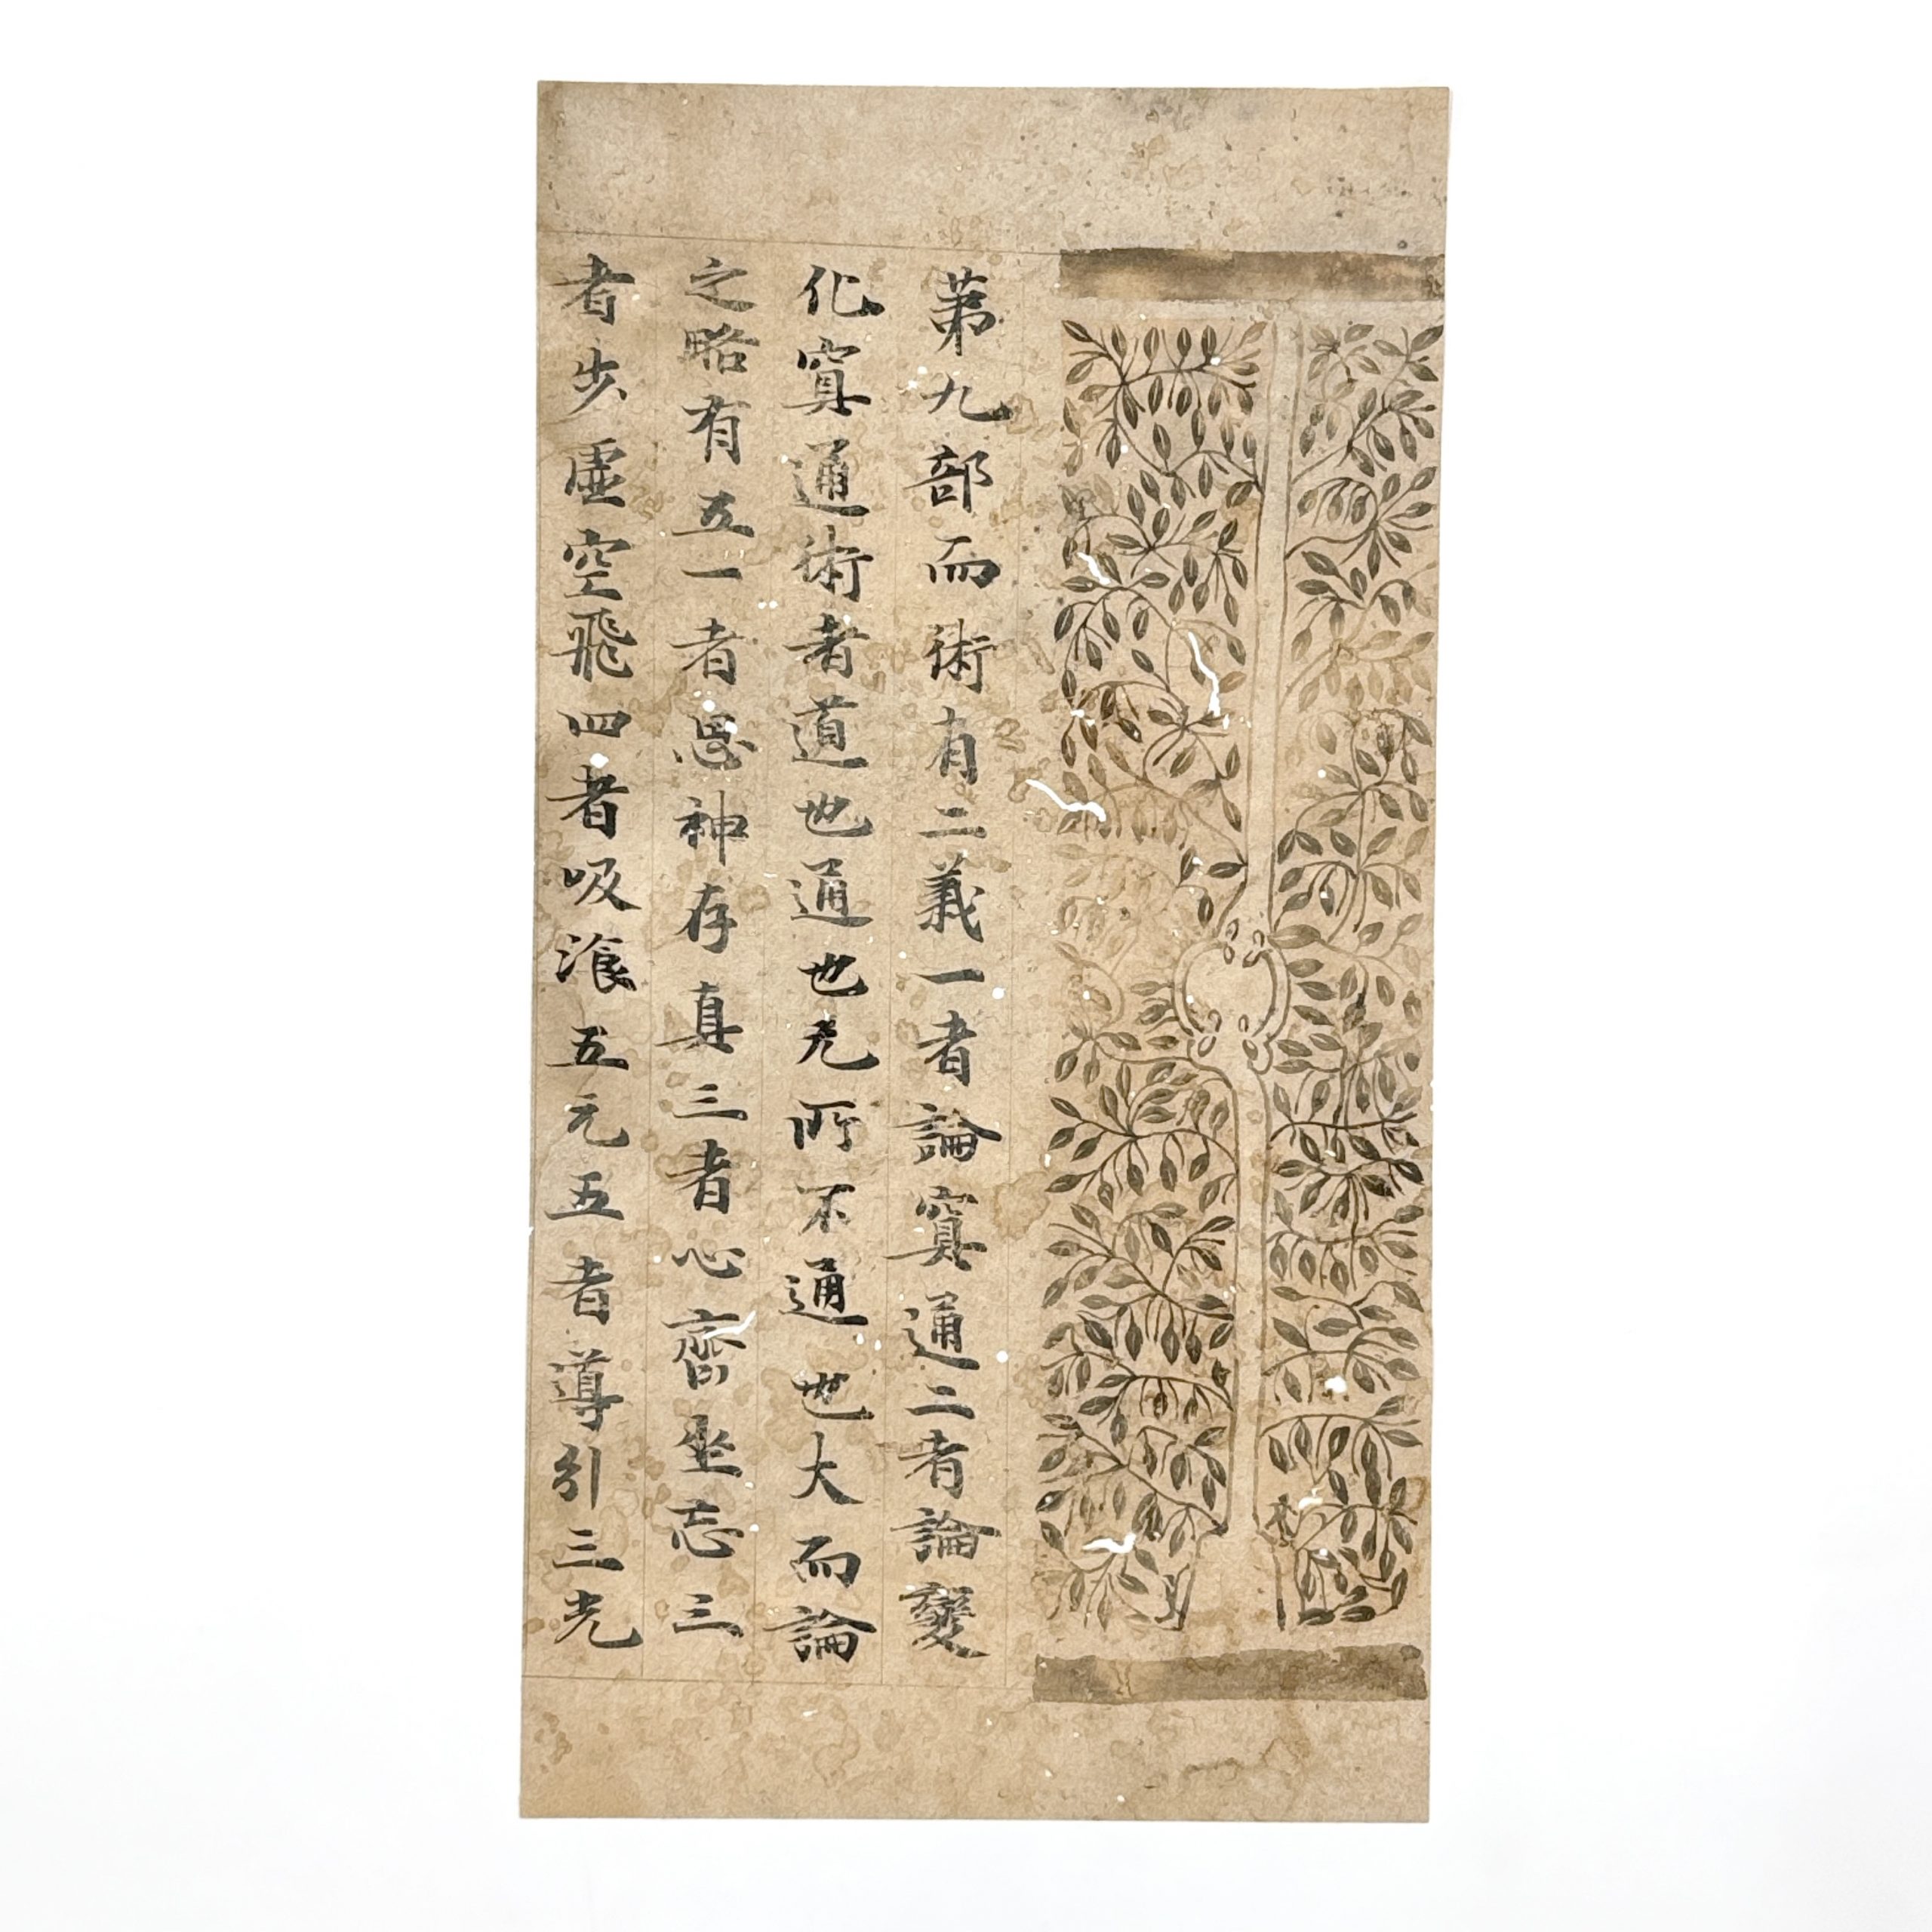 第九部而術有二義一者論寘通二者論變
化寘通術者道也通也無所不通也大而論
之略有五一者思神存真三者心齋坐忘三
者步虛空飛四者吸飡五元五者導引三光